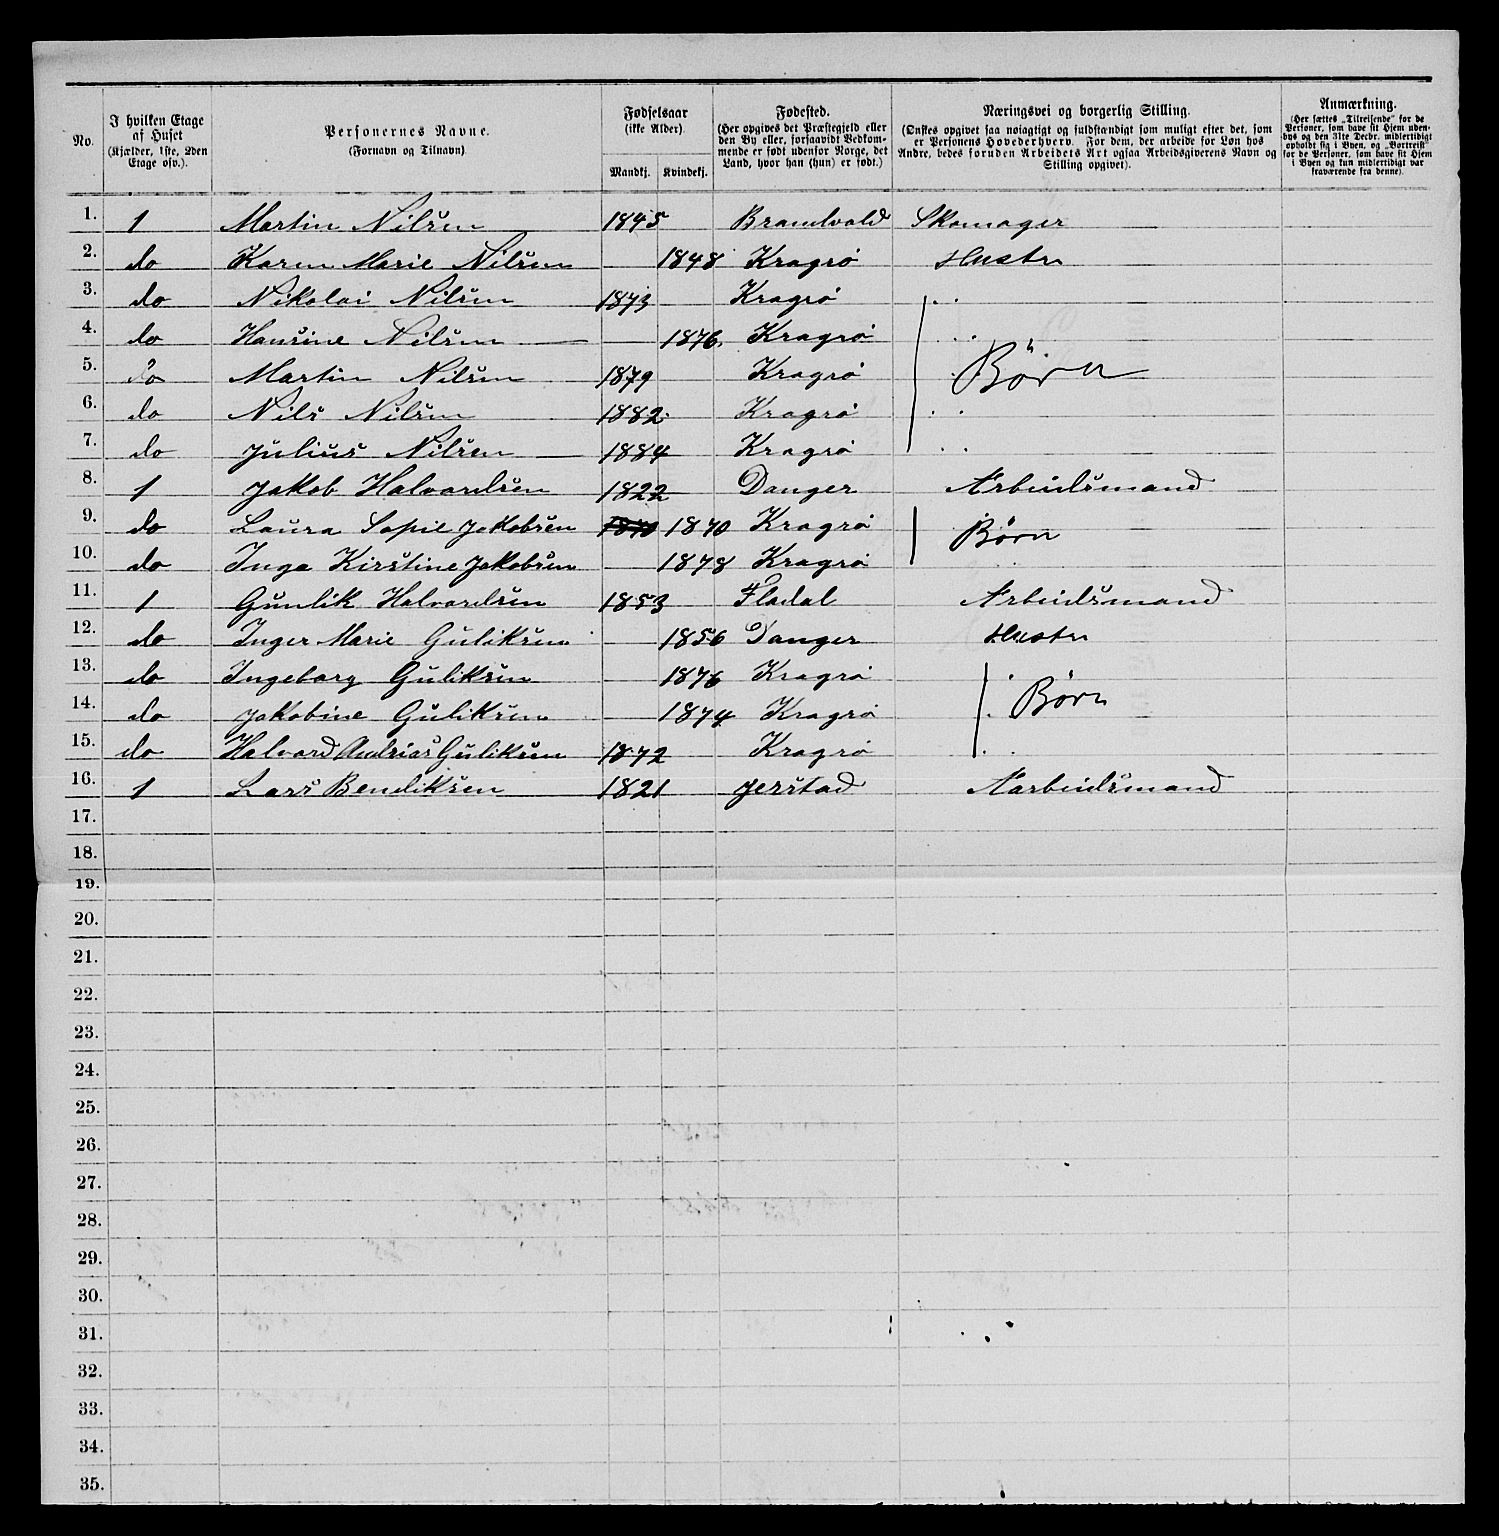 No. | I hvilken Etage af Huset (Kjælder, 1ste, 2den Etage osv.). | Personernes Navne. (Fornavn og Tilnavn) | Fødselsaar (ikke Alder) Mandkj. | Kvindekj. | Fødested. (Her opgives det Præstegjeld eller den By eller, forsaavidt Vedkommende er født udenfor Norge, det Land, hvor han (hun) er født.) | Næringsvei og borgerlig Stilling. (Ønskes opgivet saa nøiagtigt og fuldstændigt som muligt efter det, som er Personens Hovederhverv. For dem, der arbeide for Løn hos Andre, bedes foruden Arbeidets Art ogsaa Arbeidsgiverens Navn og Stilling opgivet). | Anmærkning. (Her sættes „Tilreisende" for de Personer, som have sit Hjem udenbys og den 31te Decbr. midlertidigt opholdt sig i Byen, og „Bortreist" for de Personer, som have sit Hjem i Byen og kun midlertidigt var fraværende fra denne).
1. 1 Martin Nilsen 1845 Brandvold Skomager
2. do Karen Marie Nilsen 1848 Kragrö Hustru
3. do Nikolai Nilsen 1873 Kragrö
4. do Hansine Nilsen 1876 Kragrö
5. do Martin Nilsen 1879 Kragrö Børn
6. do Nils Nilsen 1882 Kragrö
7. do Julius Nilsen 1884 Kragrö
8. 1 Jakob Halvordsen 1822 Danger Arbeidsmand
9. do Laura Sopie Jakobsen 1870 1870 Kragrö Børn
10. do Inga Kirstine Jakobsen 1878 Kragrö
11. 1 Gunlik Halvordsen 1853 Fladal Arbeidsmand
12. do Inger Marie Guliksen 1856 Danger Hustru
13. do Ingeborg Guliksen 1876 Kragrö
14. do Jakobine Guliksen 1874 Kragrö Børn
15. do Halvord Andrias Guliksen 1872 Kragrö
16. 1 Lars Bendiksen 1821 Jerstad Aarbeidsmand
17.
18.
19.
20.
21.
22.
23.
24.
25.
26.
27.
28.
29.
30.
31.
32.
33.
34.
35.